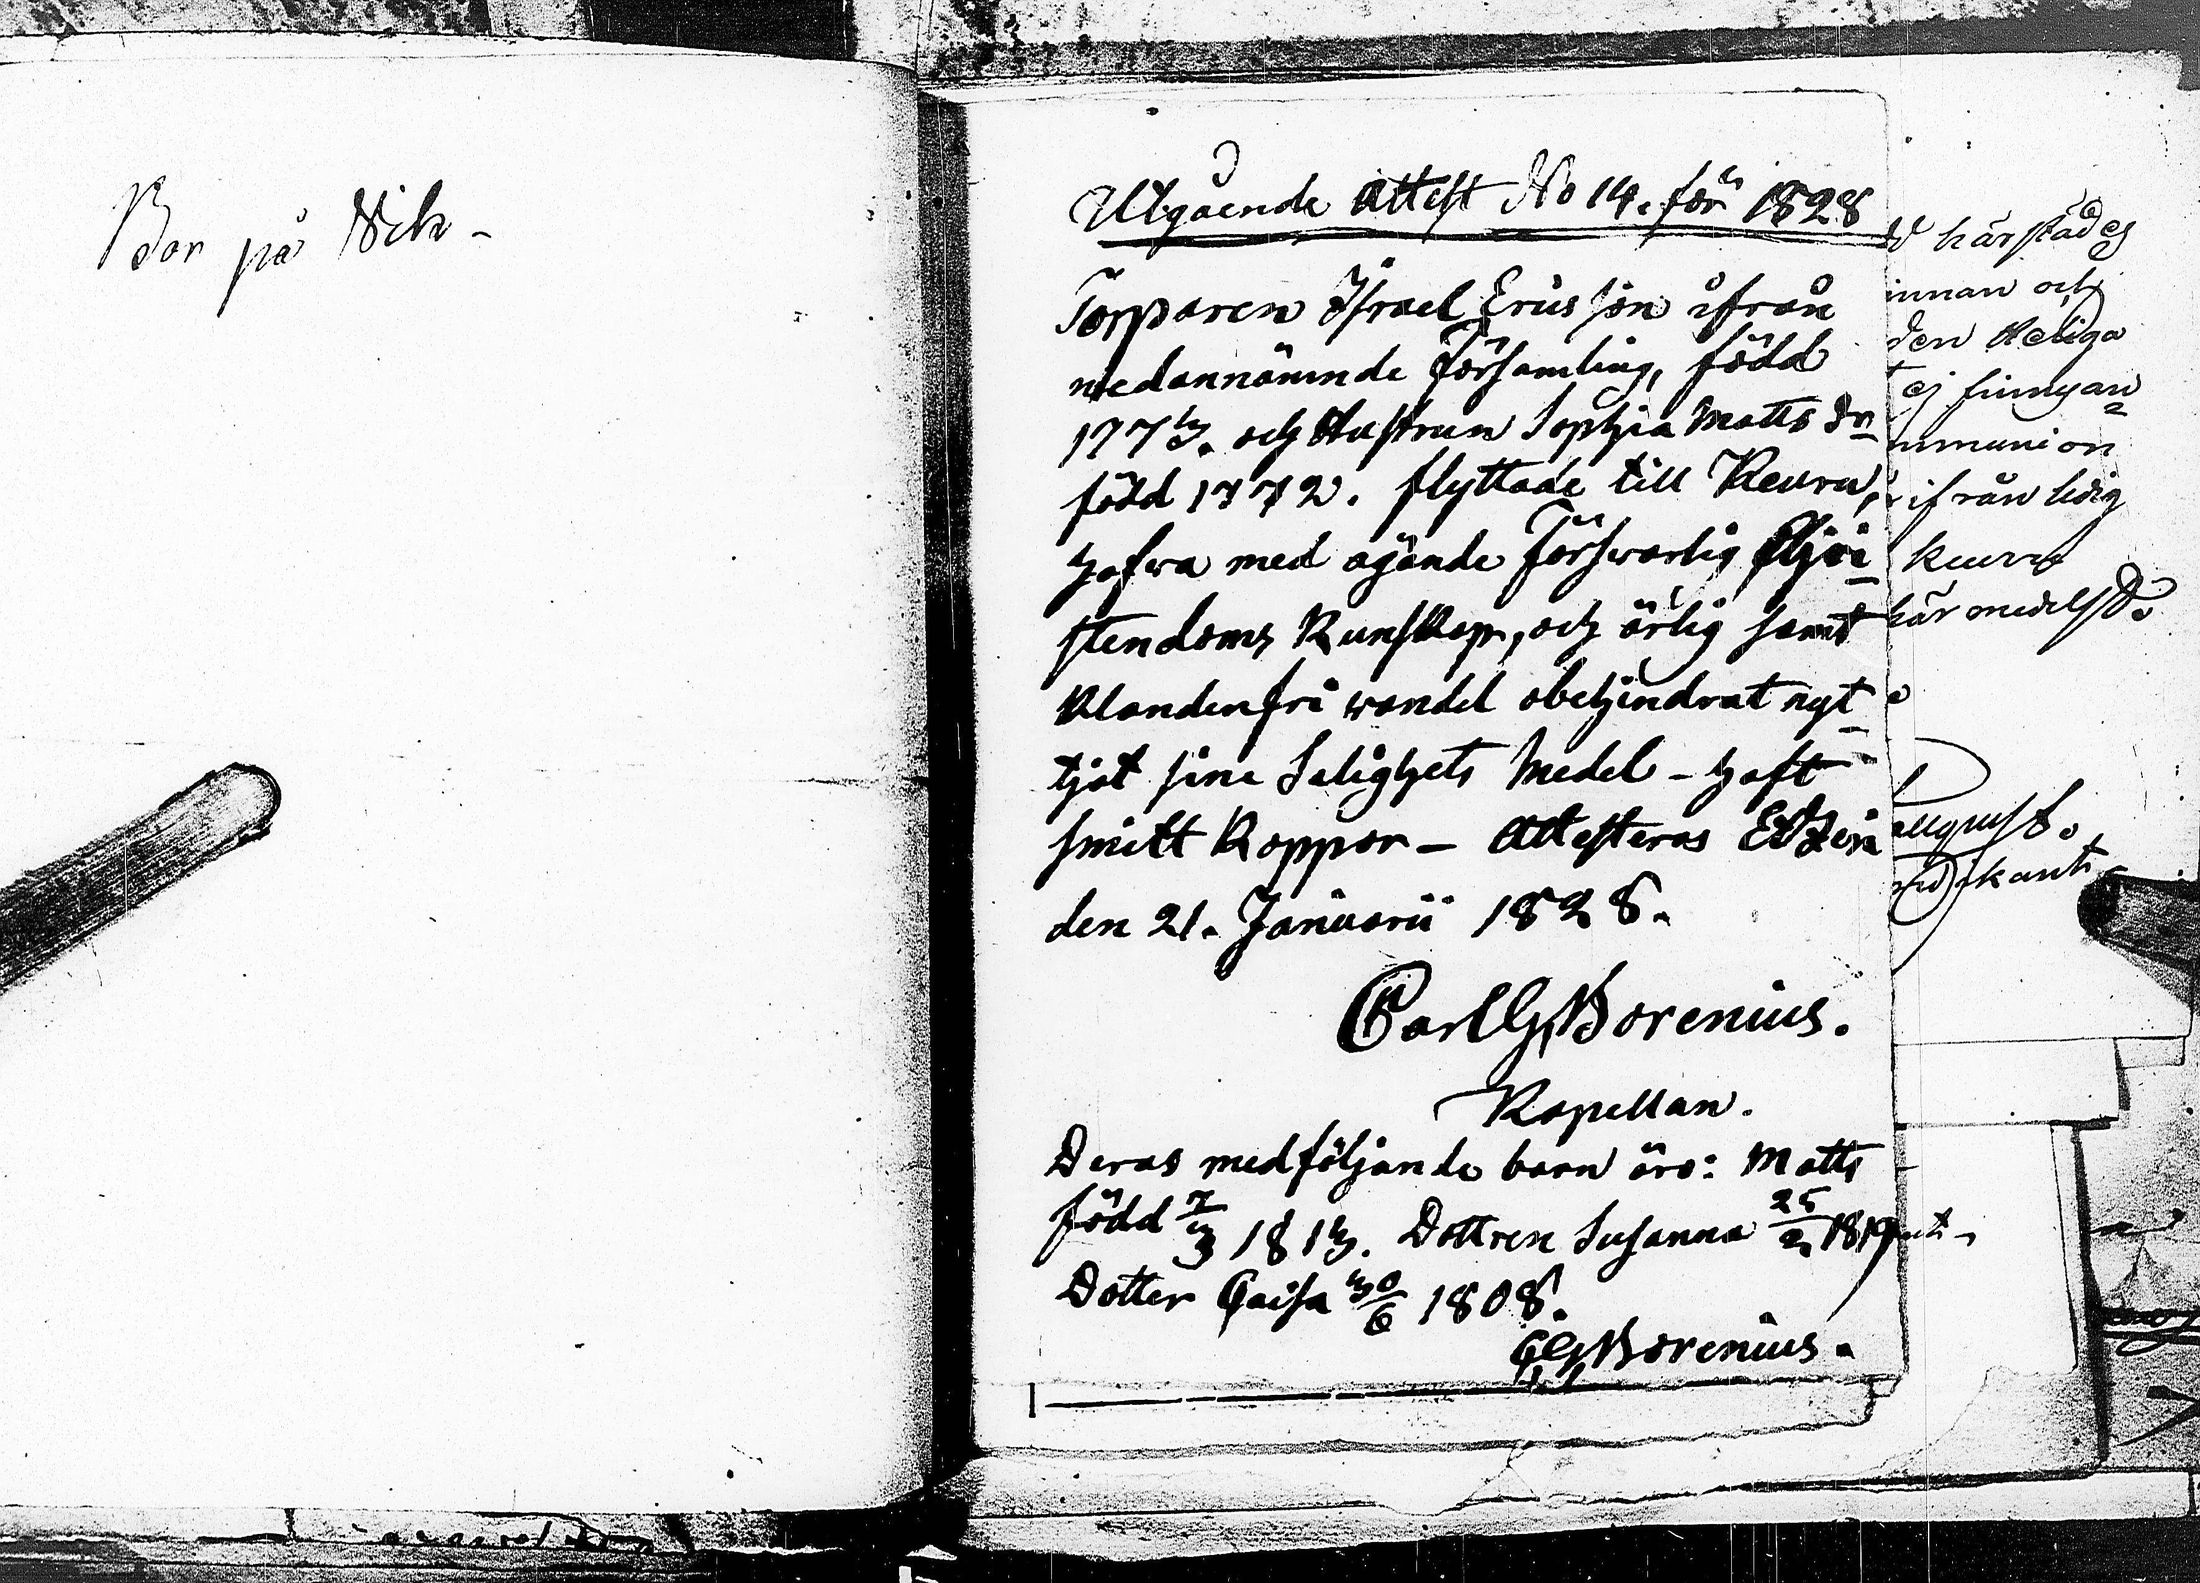 Bor på
Utgående Attest No 14. för 1828
Torparen Israel Ericsson ifrån
nedannämnde Församling, född
1773. och Hustrun Sophia Matts dr
född 1772. flyttade till Keuru,
hafwa med ägande Förswarlig Chri-
stendoms Kunskap, och ärlig samt
klanderfri wandel obehindrat nyt-
tjat sine Salighets Medel - haft
smitt Koppor - Attesteras Etzeri
den 21. Januarii 1828.
Carl G. Borenius.
Kapellan.
Deras medföljande barn äro: Matts
född 7/3 1813. Dottren Susanna 25/2 1819
Dotter Caisa 30/6 1808.
CG Borenius.
härstädes
innan och
den Heliga
ej finnyan
mmunion
ifrån ledig
Keuru
här medelst.